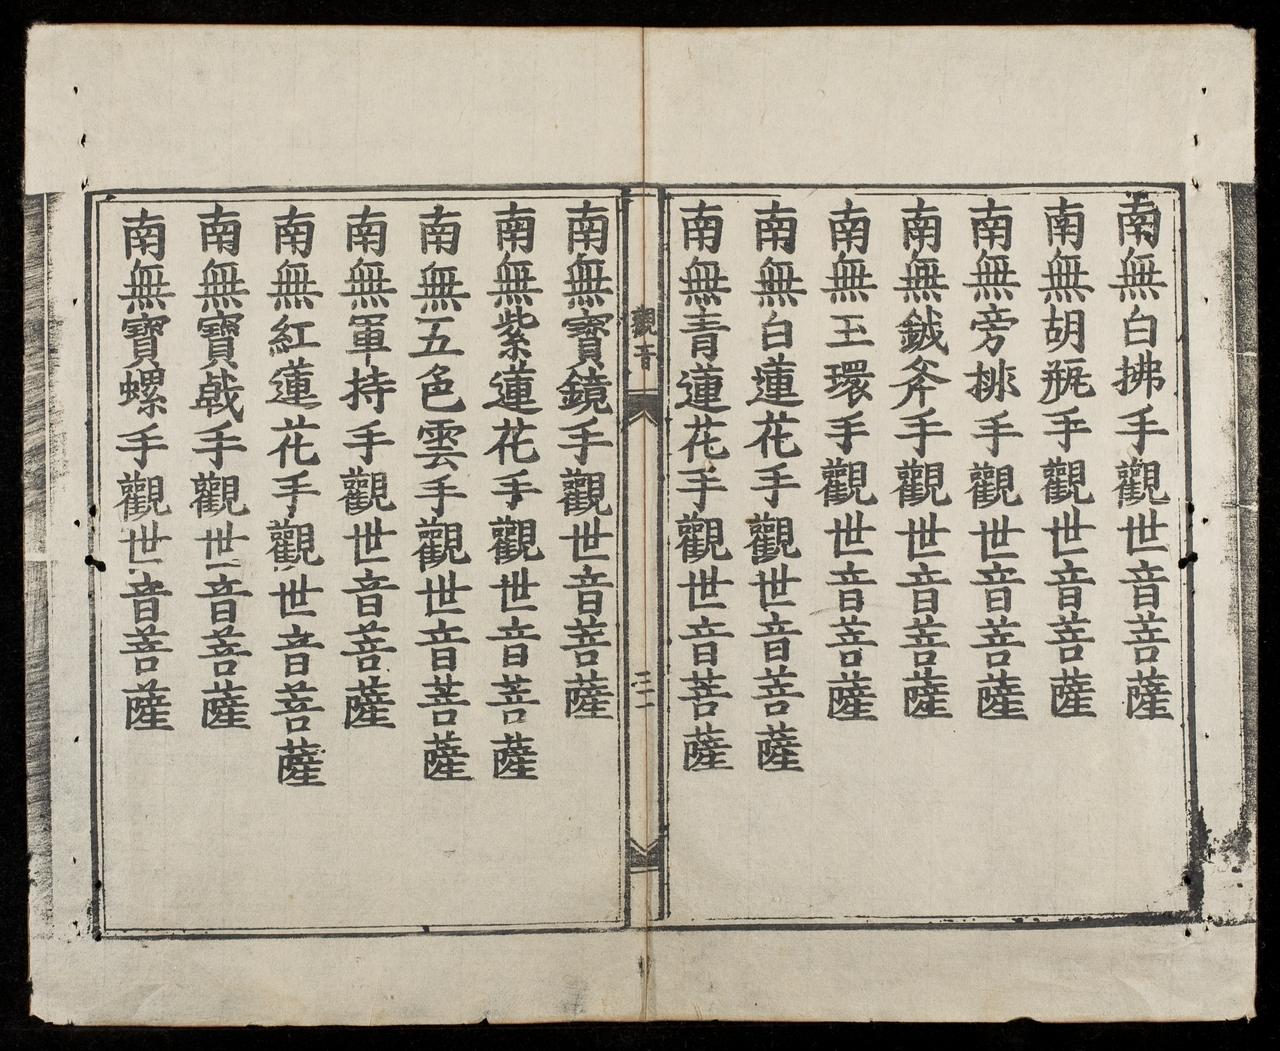 南無白拂手觀世音菩薩
南無胡瓶手觀世音菩薩
南無旁排手觀世音菩薩
南無鉞斧手觀世音菩薩
南無玉環手觀世音菩薩
南無白蓮花手觀世音菩薩
南無青蓮花手觀世音菩薩
觀音
二十一
南無寶鏡手觀世音菩薩
南無紫蓮花手觀世音菩薩
南無五色雲手觀世音菩薩
南無軍持手觀世音菩薩
南無紅蓮花手觀世音菩薩
南無寶戟手觀世音菩薩
南無寶螺手觀世音菩薩